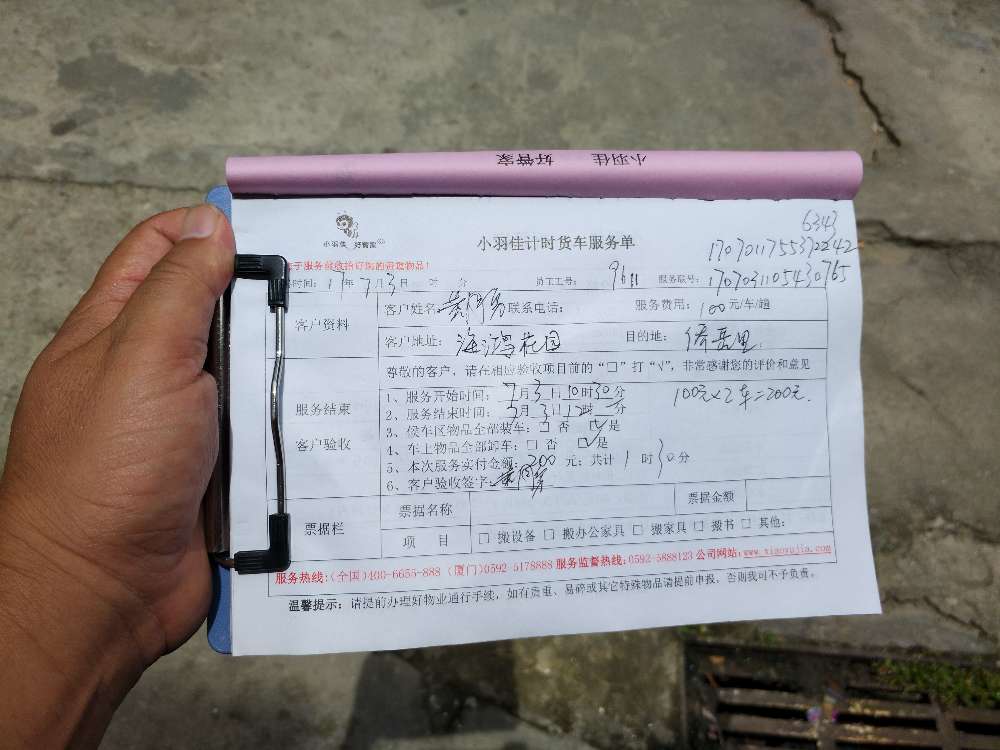 小羽佳 好管家
小羽佳 好管家
6343
小羽佳计时货车服务单
17070117553722242
于服务前收拾好您的贵重物品!
时间: 17年7月3日 时 分 员工工号: 9611 服务取号: 1707031105430765
客户资料
客户姓名: 联系电话: 服务费用: 100元/车/趟
客户地址: 海鸿花园 目的地:
尊敬的客户,请在相应验收项目前的“□”打“√”,非常感谢您的评价和意见
服务结束
客户验收
1、服务开始时间: 7月3日10时30分 100元×2车=200元.
2、服务结束时间: 7月3日12时 分
3、候车区物品全部装车: □ 否 ☑是
4、车上物品全部卸车: □ 否 ☑是
5、本次服务实付金额: 200 元: 共计 1 时30分
6、客户验收签字:
票据栏
票据名称 票据金额
项 目 □ 搬设备 □ 搬办公家具 □ 搬家具 □ 搬书 □ 其他:
服务热线:(全国)400-6655-888 (厦门)0592-5178888 服务监督热线:0592-5888123 公司网站:www.xiaoyujia.com
温馨提示: 请提前办理好物业通行手续,如有质重、易碎或其它特殊物品请提前申报,否则我司不予负责。